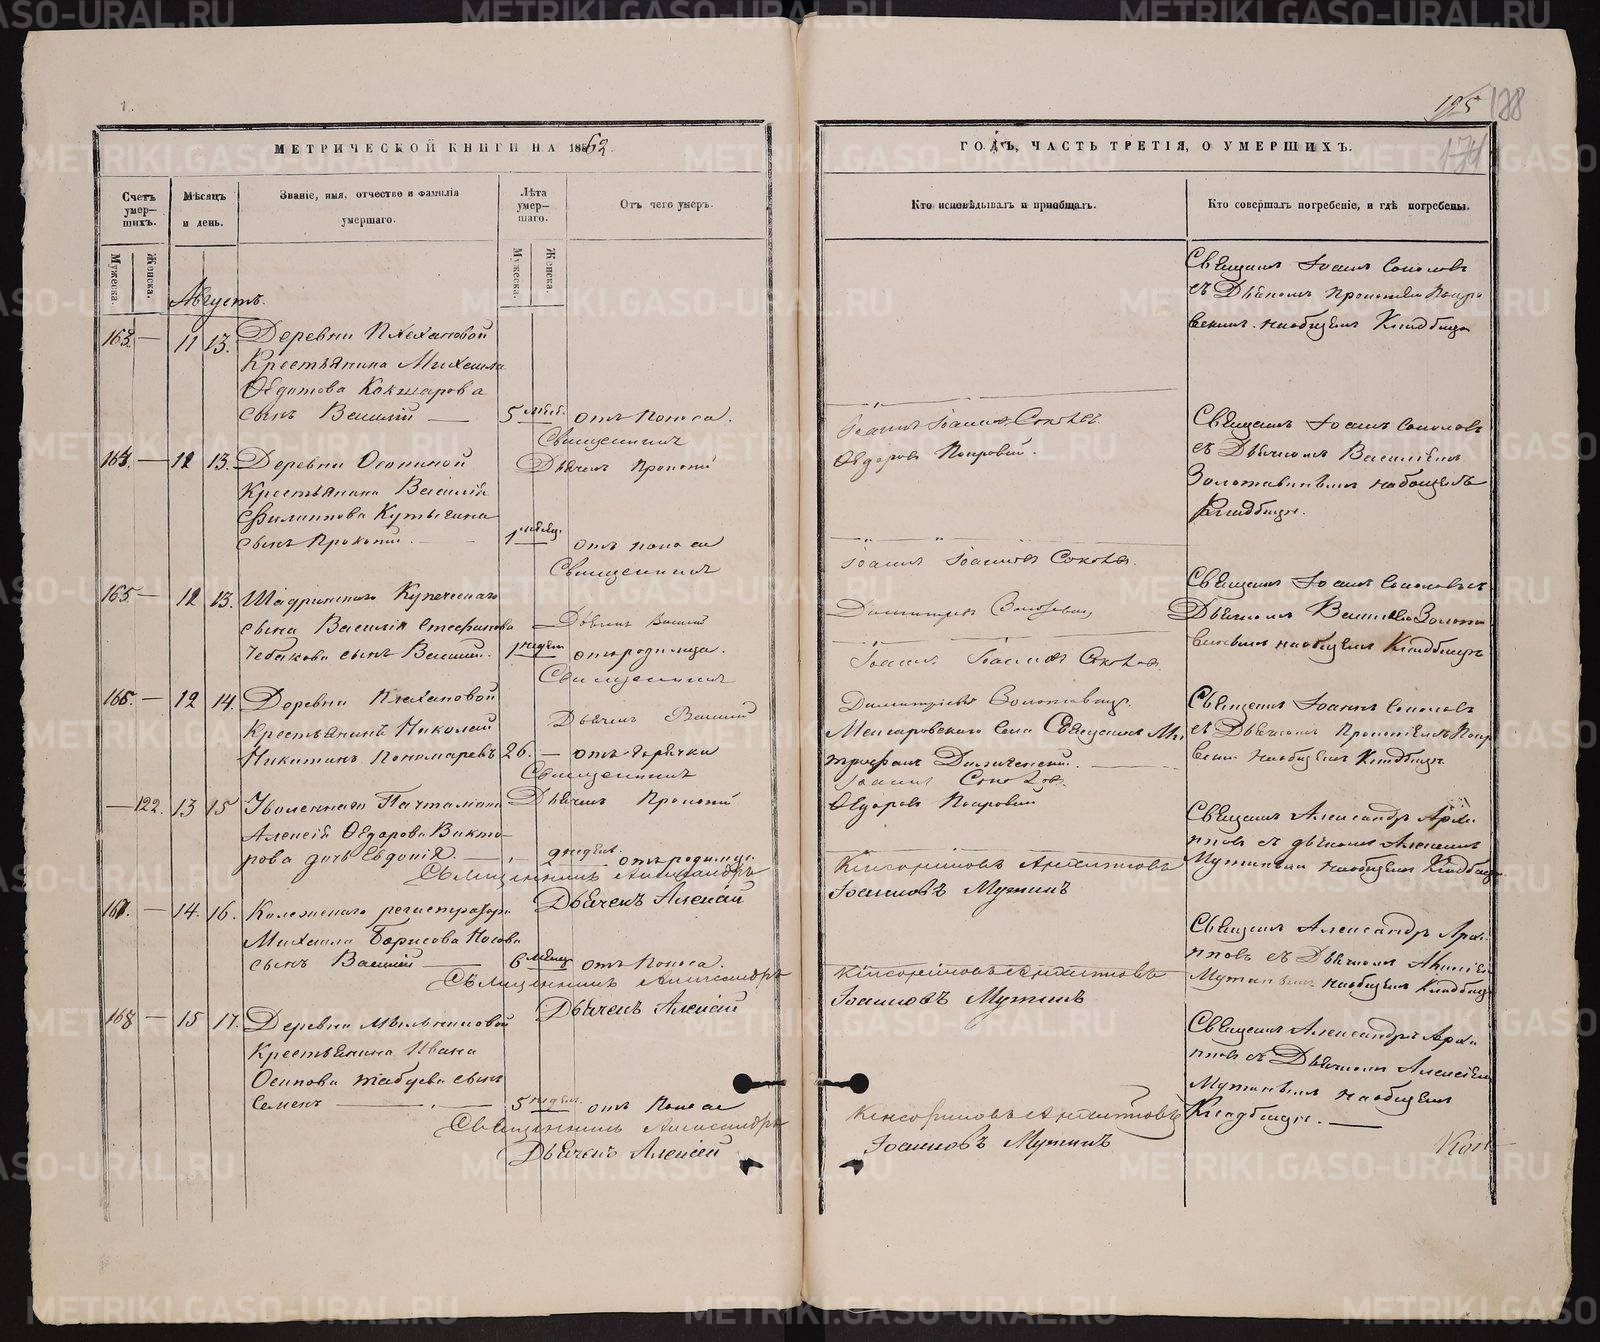 125 188
171
МЕТРИЧЕСКОЙ КНИГИ НА 1862
ГОДЪ, ЧАСТЬ ТРЕТІЯ, О УМЕРШИХЪ.
Счетъ умер-
шихъ.
Мѣсяцъ
и день.
Званіе, имя, отчество и фамилія
умершаго.
Лѣта
умер-
шаго.
Отъ чего умеръ.
Кто исповѣдывалъ и пріобщалъ.
Кто совершалъ погребеніе, и гдѣ погребены.
Мужеска.
Женска.
Мужеска.
Женска.
Августъ.
163. — 11 13. Деревни Плехановой
Крестьянина Михаила
Ѳедотова Кокшарова
сынъ Василій — 5 мѣс. отъ поноса.
Священникъ Іоаннъ Іоанновъ Соколовъ.
Дьячекъ Прокопій Ѳедоровъ Покровскій.
Священникъ Іоаннъ Соколовъ
съ Дьячкомъ Прокопіемъ Покро
вскимъ на общемъ Кладбищѣ
164. — 12 13. Деревни Осокиной
Крестьянина Василія
Филиппова Кутыгина
сынъ Прокопій. 1 мѣсяц. отъ поноса
Священникъ Іоаннъ Іоанновъ Соколовъ.
Дьячекъ Василій Димитріевъ
Священникъ Іоаннъ Соколовъ
съ Дьячкомъ Василіемъ
на общемъ
Кладбищѣ.
165. — 12 13. Шадринскаго Купеческаго
сына Василія Стефанова
Чебакова сынъ Василій. 1 недѣл. отъ родимца.
Священникъ Іоаннъ Іоанновъ Соколовъ
Дьячекъ Василій Димитріевъ
Священникъ Іоаннъ Соколовъ съ
Дьячкомъ
на общемъ Кладбищѣ
166. — 12 14. Деревни Плехановой
Крестьянинъ Николай
Никитинъ Пономаревъ 26. — отъ горячки
Священникъ Іоаннъ Соколовъ.
Дьячекъ Прокопій Ѳедоровъ Покровскій
Села Священникъ Ми
трофанъ
Священникъ Іоаннъ Соколовъ
съ Дьячкомъ Прокопіемъ Покро
вским. на общемъ Кладбищѣ
— 122. 13 15 Уволеннаго Почталіона
Алексія Ѳедорова Викто-
рова дочь Евдокія. — 2 недѣл. отъ родимца.
Священникъ Александръ Ксенофонтовъ Архиповъ
Дьячекъ Алексій Іоанновъ Мутинъ
Священникъ Александръ Архи
повъ съ дьячкомъ Алексіемъ
Мутинымъ на общемъ Кладбищѣ
167. — 14. 16. Колежскаго регистратора
Михаила Борисова Носова
сынъ Василій — 6 мѣсяц. отъ Поноса.
Священникъ Александръ Ксенофонтовъ Архиповъ
Дьячекъ Алексій Іоанновъ Мутинъ
Священникъ Александръ Архи
повъ съ Дьячкомъ Алексіемъ
Мутинымъ на общемъ Кладбищѣ
168 — 15 17. Деревни Мыльниковой
Крестьянина Ивана
Осипова сынъ
Семенъ — 5 недѣл. отъ Поноса
Священникъ Александръ Ксенофонтовъ Архиповъ
Дьячекъ Алексій Іоанновъ Мутинъ
Священникъ Александръ Архи
повъ съ Дьячкомъ Алексіемъ
Мутинымъ на общемъ
Кладбищѣ. —
METRIKI.GASO-URAL.RU